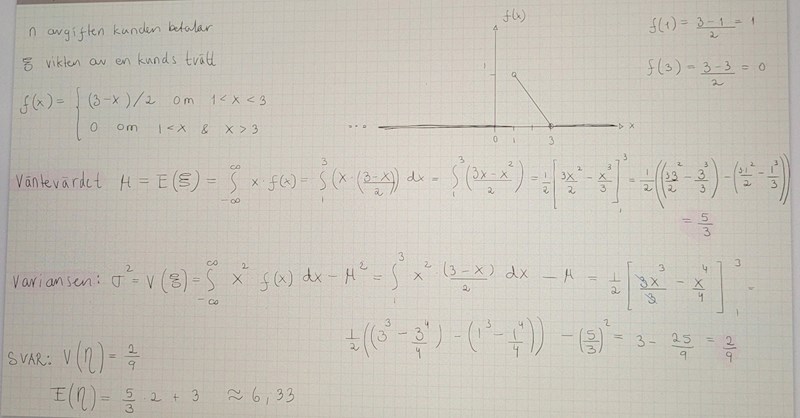 η avgiften kunden betalar
ξ vikten av en kunds tvätt
f(x) = { (3-x)/2 om 1<x<3
0 om 1<x & x>3
f(x)
1
0 1 3 x
f(1) = (3-1)/2 = 1
f(3) = (3-3)/2 = 0
Väntevärdet μ = E(ξ) = ∫_{-∞}^{∞} x·f(x) = ∫_1^3 (x·(3-x)/2) dx = ∫_1^3 (3x-x²)/2 = 1/2 [3x²/2 - x³/3]_1^3 = 1/2 ((3·3²/2 - 3³/3) - (3·1²/2 - 1³/3))
= 5/3
Variansen: σ² = V(ξ) = ∫_{-∞}^{∞} x² f(x) dx - μ² = ∫_1^3 x² · (3-x)/2 dx - μ = 1/2 [3x³/3 - x⁴/4]_1^3 =
1/2 ((3³ - 3⁴/4) - (1³ - 1⁴/4)) - (5/3)² = 3 - 25/9 = 2/9
SVAR: V(η) = 2/9
E(η) = 5/3 · 2 + 3 ≈ 6,33